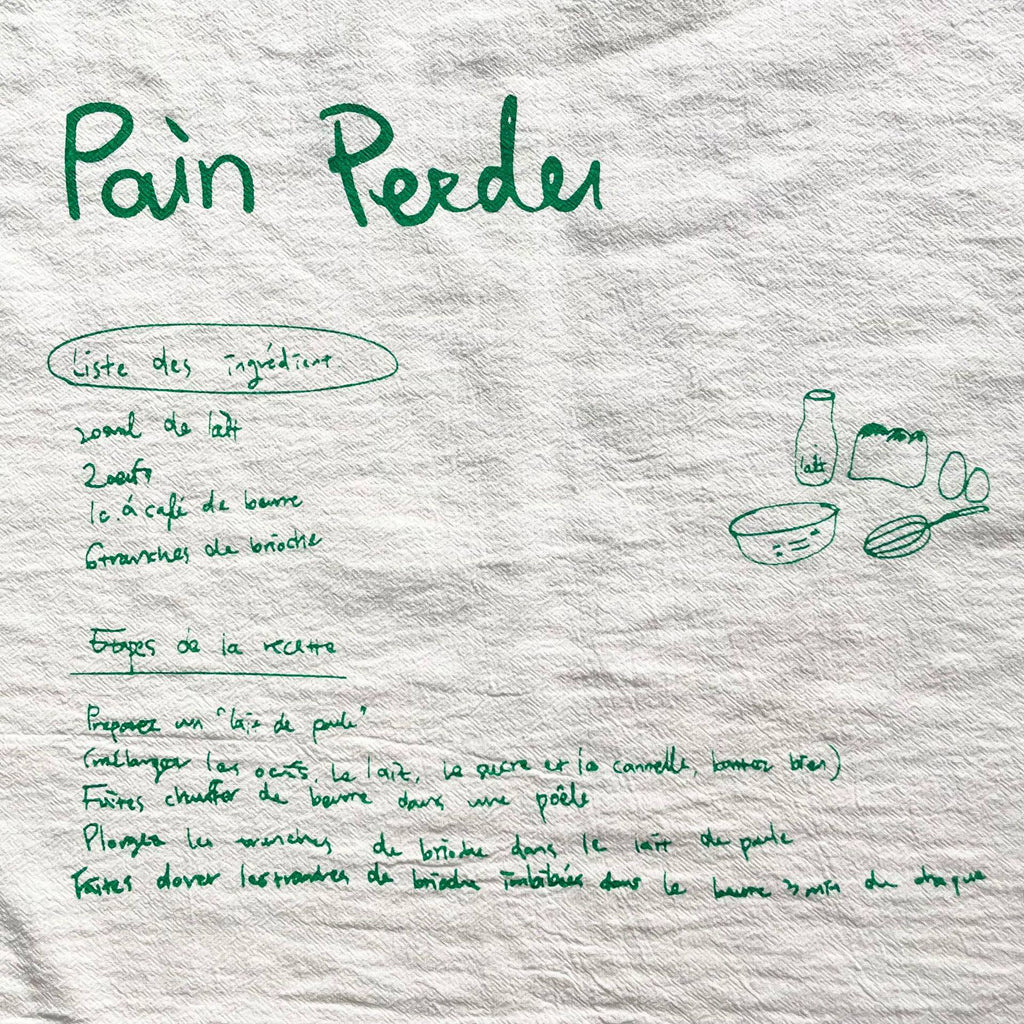 Pain Perdu
Liste des ingrédient
200ml de lait
2 oeufs
1c. à café de beurre
6 tranches de brioche
lait
Etapes de la recette
Préparez un "lait de poule"
(mélanger les oeufs, le lait, le sucre et la cannelle, battez bien)
Faites chauffer de beurre dans une poêle
Plongez les tranches de brioche dans le lait de poule
Faites dorer les tranches de brioche imbibées dans le beurre 3 min de chaque